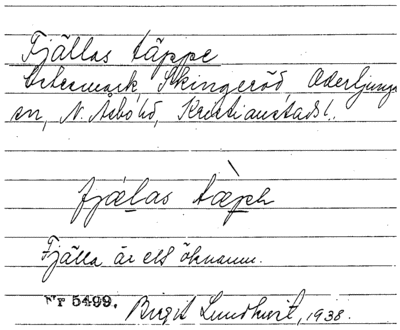 Fjällas täppe
Utesmark, Skingeröd, Oderljunga
sn, N. Åsbo hd, Kristianstads l.
fjälas tæph
Fjälla är ett öknamn.
Nr 5499. Birgit Lundkvist, 1938.